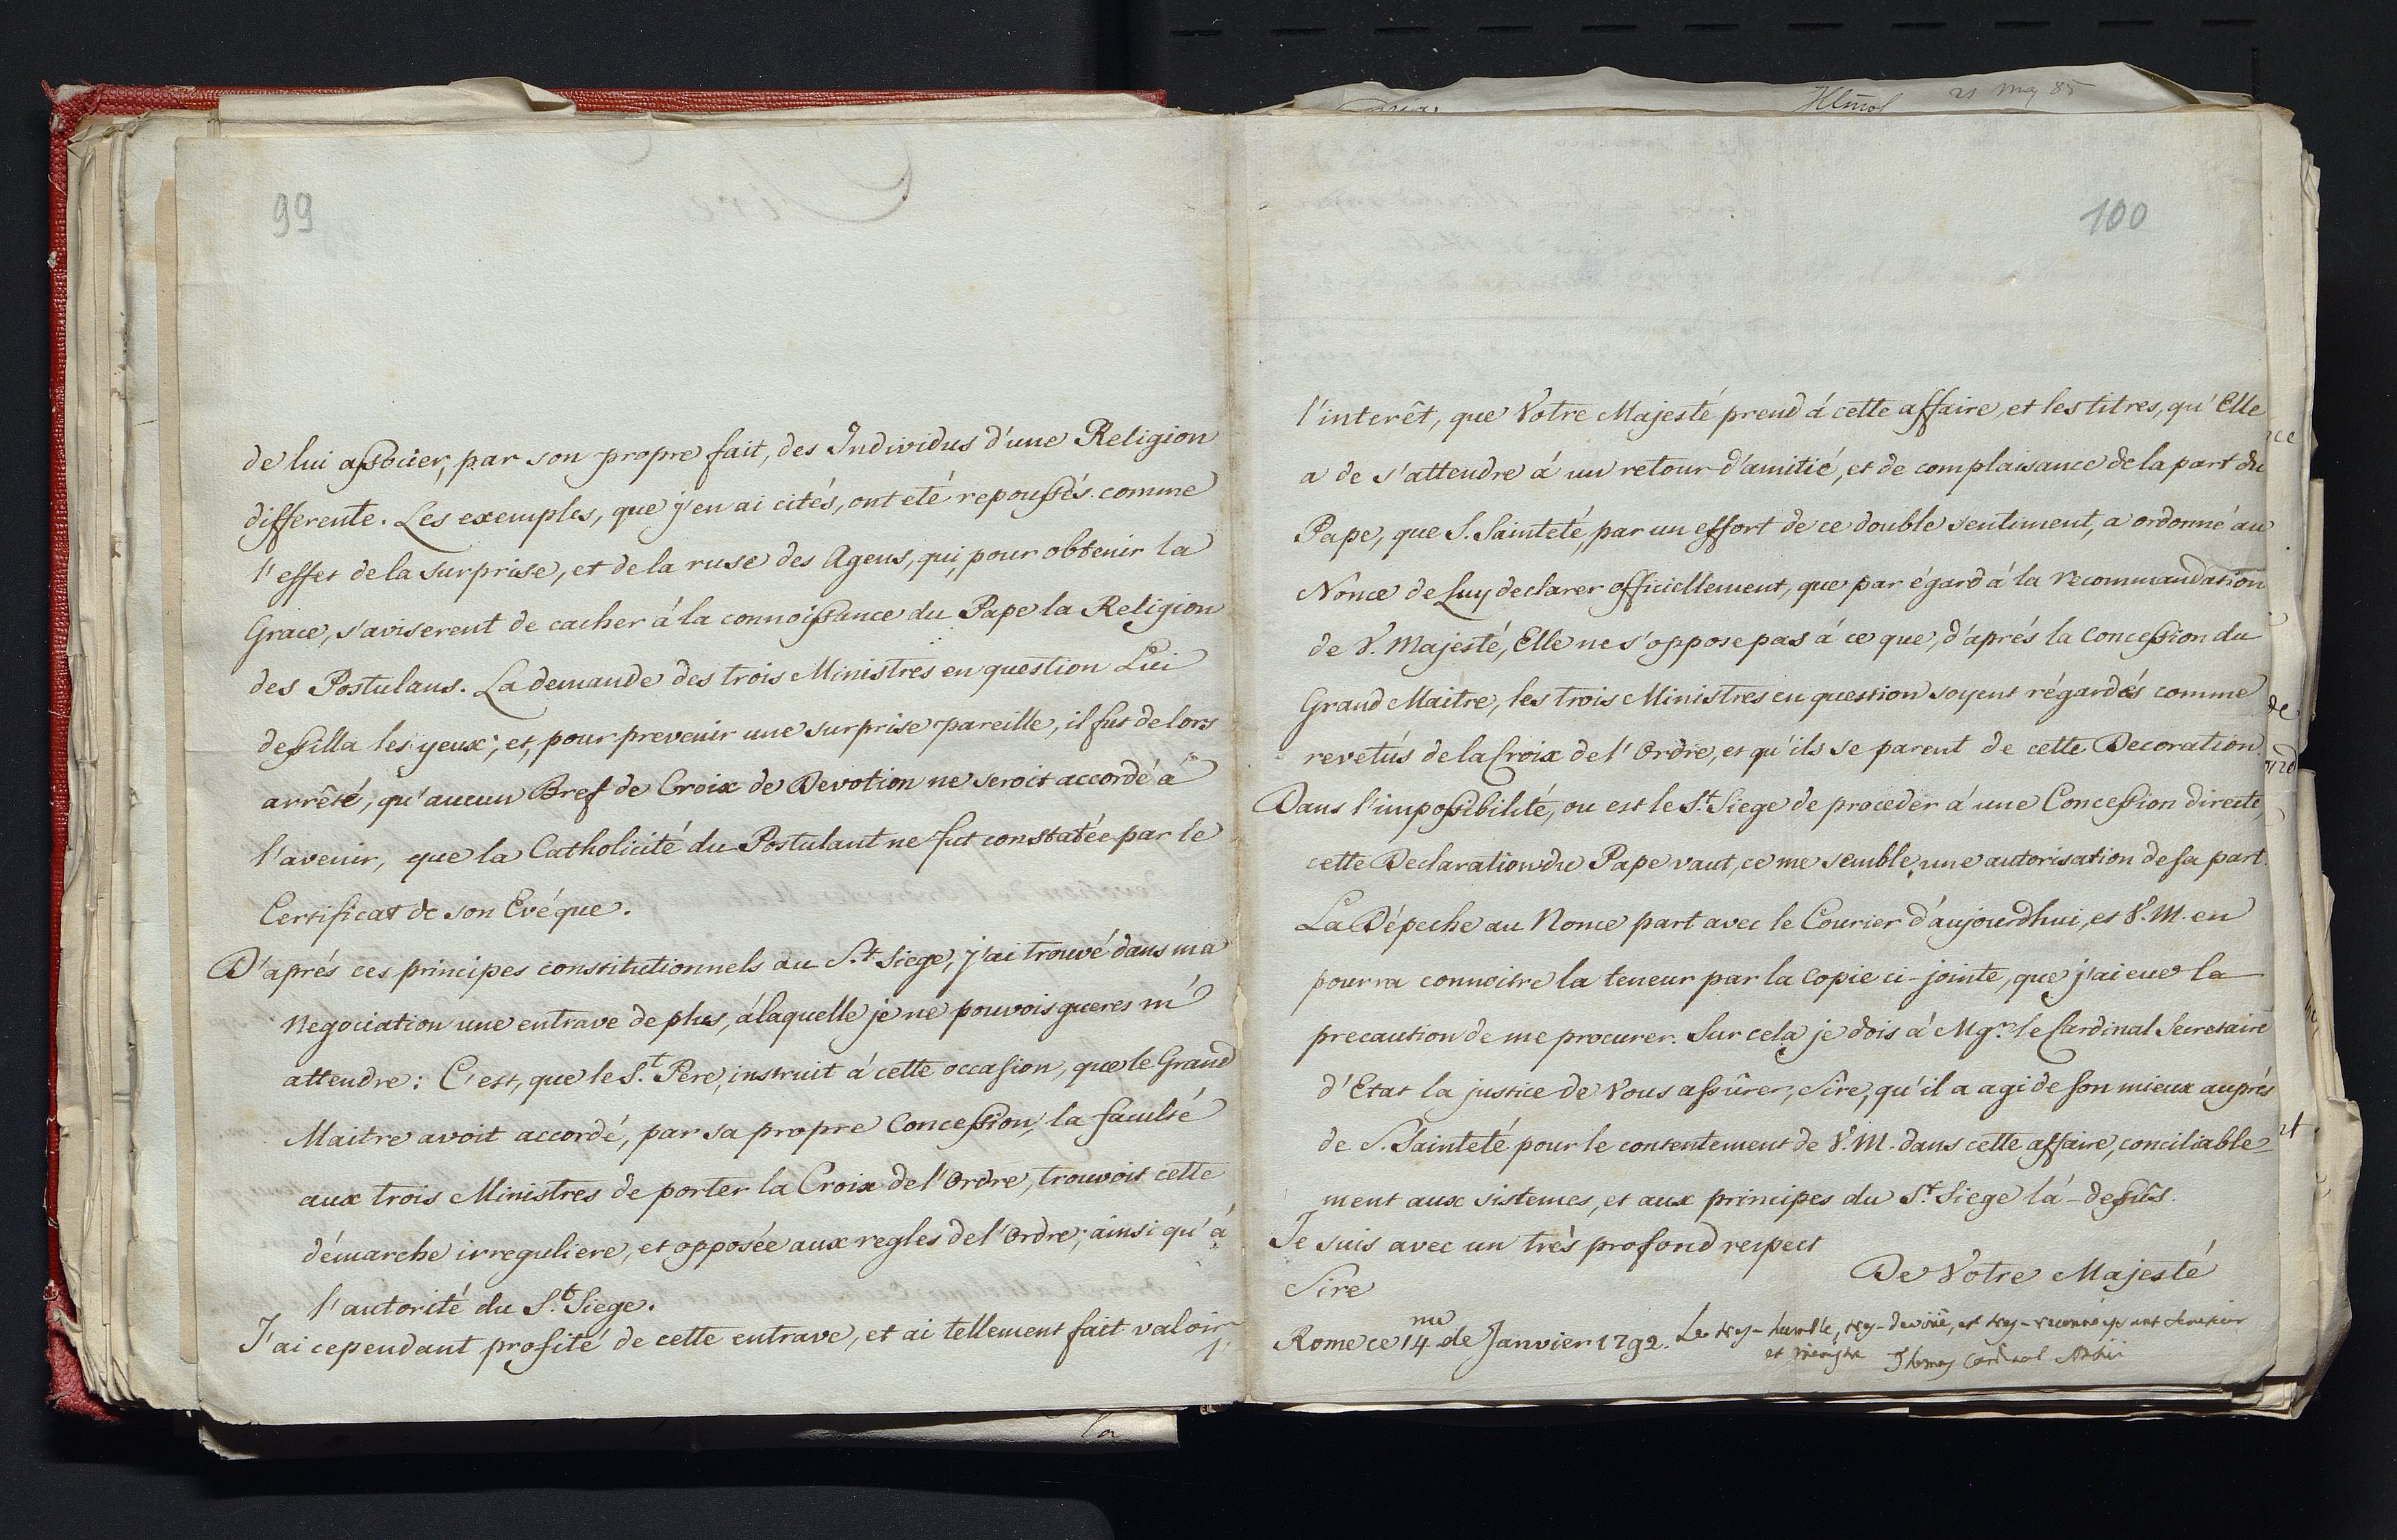 21 May 85
99
de lui associer, par son propre fait, des Individus d'une Religion
differente. Les exemples, que j'en ai cités, ont eté repoussés comme
l'effet de la surprise, et de la ruse des Agens, qui, pour obtenir la
Grace, s'aviserent de cacher á la connoissance du Pape la Religion
des Postulans. La demande des trois Ministres en question Lui
dessilla les yeux; et, pour prevenir une surprise pareille, il fut de lors
arrêté, qu'aucun Bref de Croix de Devotion ne seroit accordé á
l'avenir, que la Catholicité du Postulant ne fut constatée par le
Certificat de son Evéque.
D'aprés ces principes constitutionnels du S.t Siege, j'ai trouvé dans ma
Negociation une entrave de plus, á laquelle je ne pouvois gueres m'
attendre: C'est, que le S.t Pere, instruit á cette occasion, que le Grand
Maitre avoit accordé, par sa propre Concession, la faculté
aux trois Ministres de porter la Croix de l'Ordre, trouvoit cette
démarche irreguliere, et opposée aux regles de l'Ordre; ainsi qu'á
l'autorité du S.t Siege.
J'ai cependant profité de cette entrave, et ai tellement fait valoir
l'
100
l'interêt, que Votre Majesté prend á cette affaire, et les titres, qu'Elle
a de s'attendre á un retour d'amitié, et de complaisance de la part du
Pape, que S. Sainteté, par un effort de ce double sentiment, a ordonné au
Nonce de Luy declarer officiellement, que par égard á la recommandation
de V. Majesté, Elle ne s'oppose pas á ce que, d'aprés la Concession du
Grand Maitre, les trois Ministres en question soyent régardés comme
revetús de la Croix de l'Ordre, et qu'ils se parent de cette Decoration.
Dans l'impossibilité, ou est le S.t Siege de proceder á une Concession directe,
cette Declaration du Pape vaut, ce me semble, une autorisation de sa part.
La Dépeche au Nonce part avec le Courier d'aujourdhui, et V. M. en
pourra connoitre la teneur par la Copie ci-jointe, que j'ai eue la
precaution de me procurer. Sur cela je dois á Mg.r le Cardinal Secretaire
d'Etat la justice de Vous assûrer, Sire, qu'il a agi de son mieux auprés
de S. Sainteté pour le contentement de V. M. dans cette affaire, conciliable=
ment aux sistemes, et aux principes du S.t Siege lá-dessûs.
Je suis avec un trés profond respect
Sire
De Votre Majesté
Rome ce 14 me de Janvier 1792. Le trés-humble, trés-devoüé, et trés-reconnoissant serviteur
et Ministre Thomas Cardinal Antici